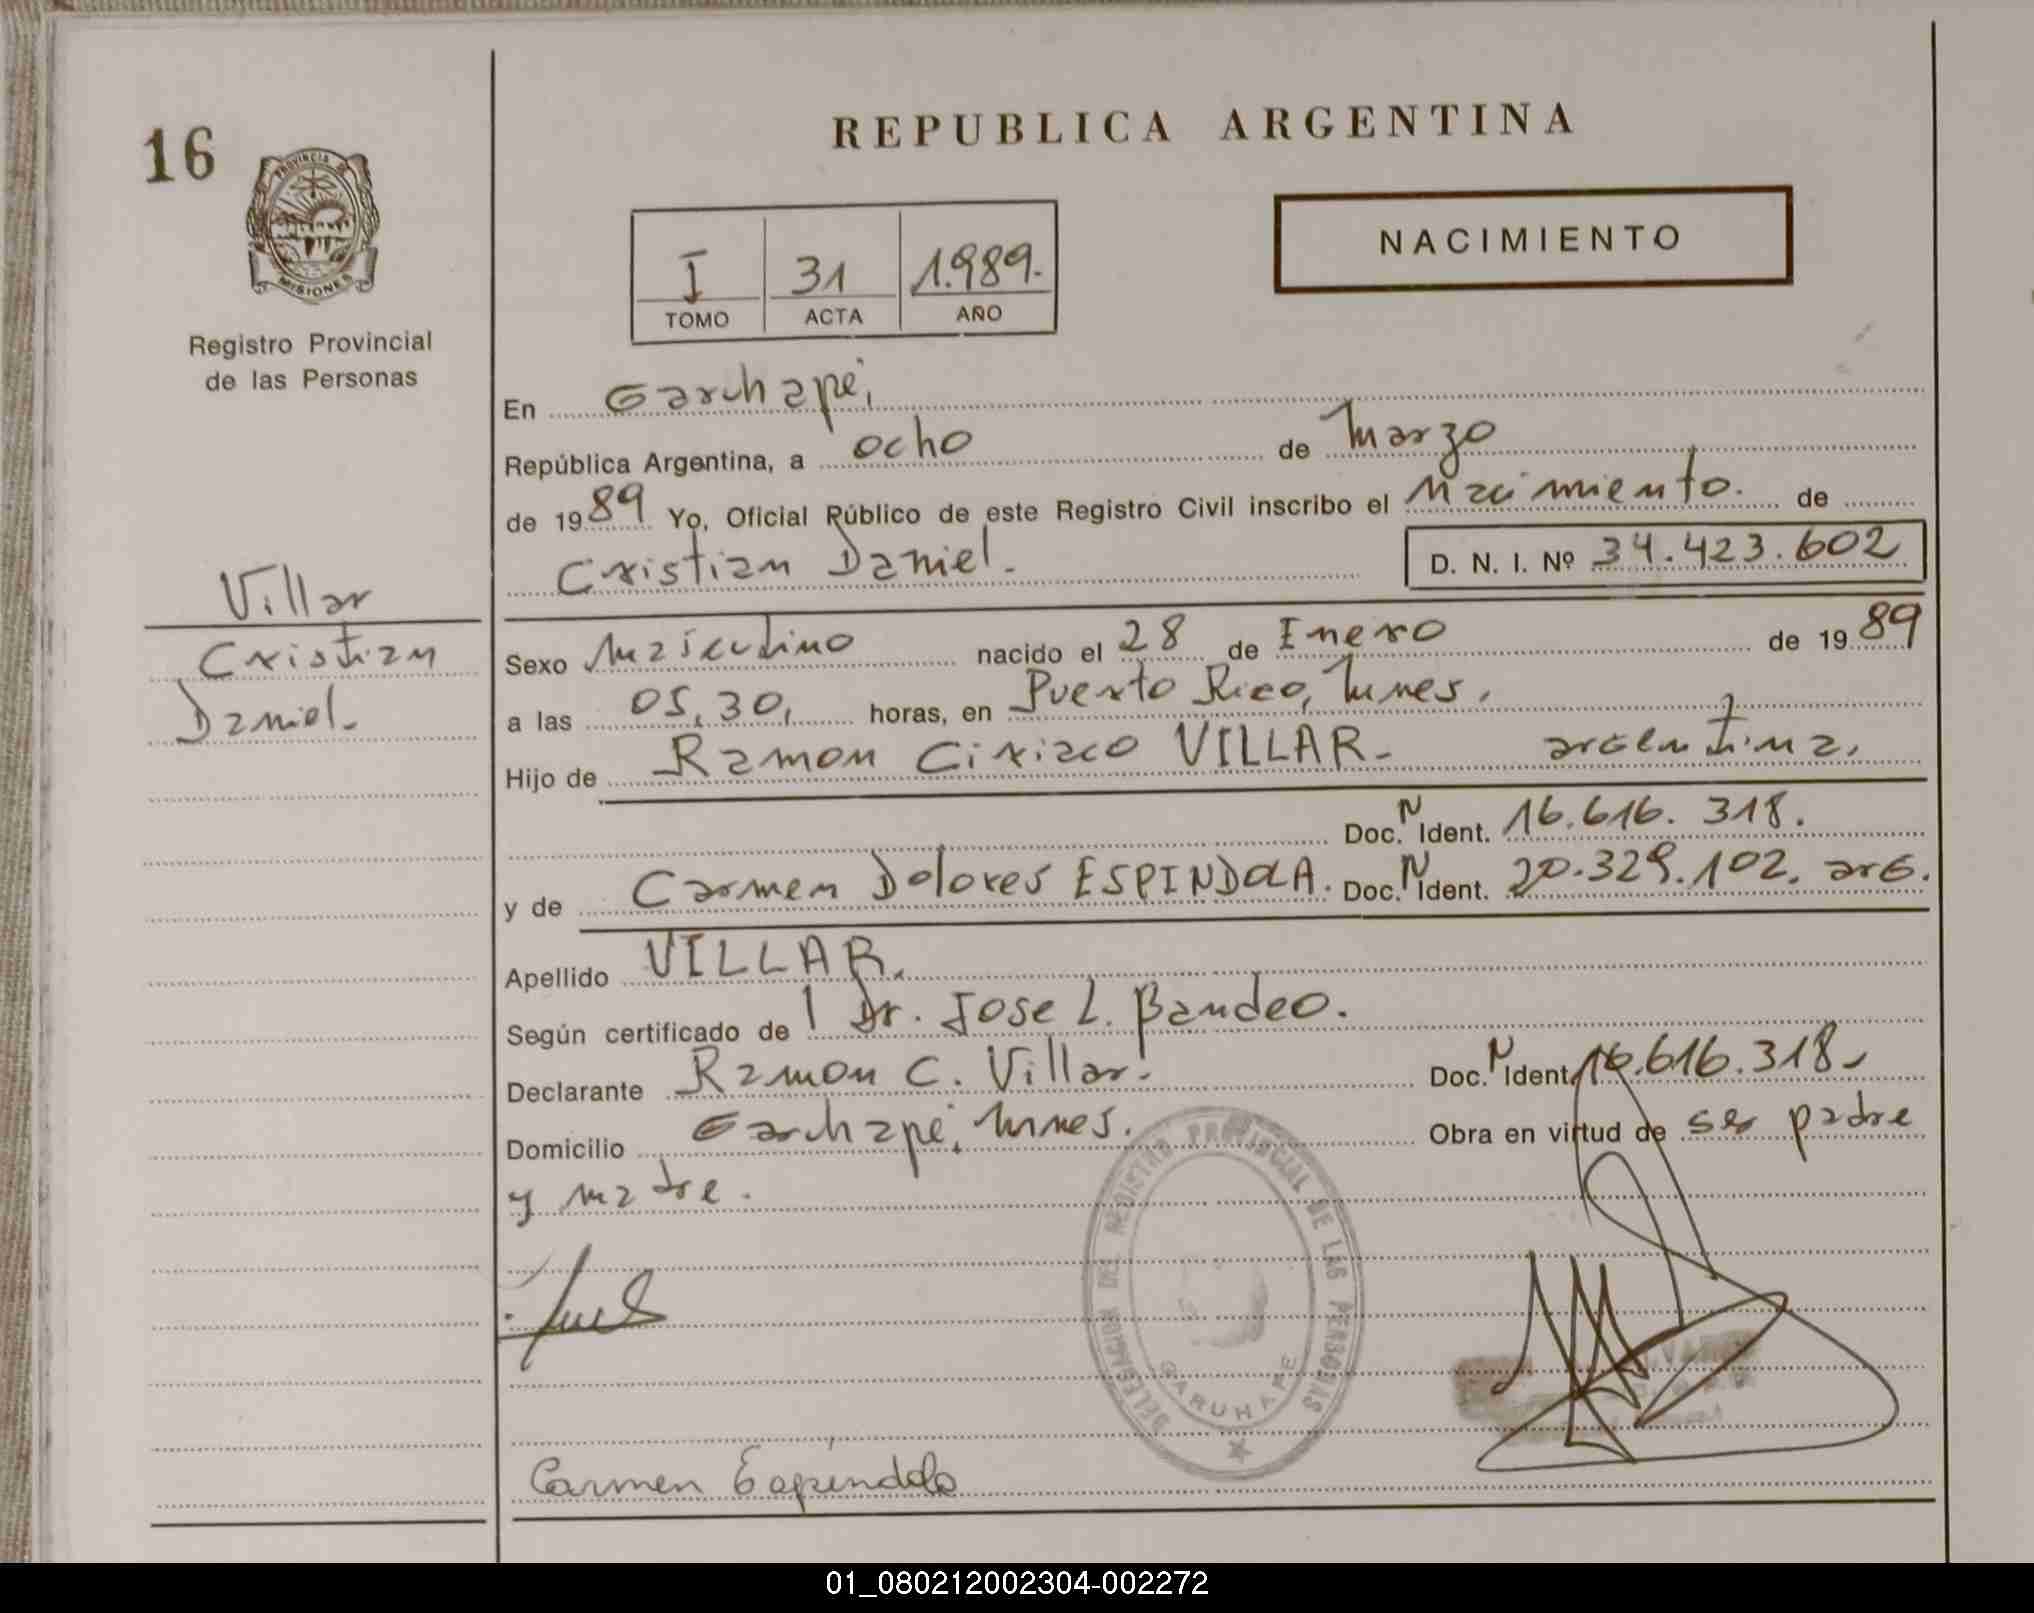 16
PROVINCIA DE
MISIONES
Registro Provincial
de las Personas
Villar
Cristian
Daniel.
REPUBLICA ARGENTINA
NACIMIENTO
I 31 1.989.
TOMO ACTA AÑO
En Garuhapé,
República Argentina, a ocho de Marzo
de 1989 Yo, Oficial Público de este Registro Civil inscribo el Nacimiento. de
Cristian Daniel. D. N. I. Nº 34.423.602
Sexo Masculino nacido el 28 de Enero de 1989
a las 05,30, horas, en Puerto Rico, Mnes.
Hijo de Ramon Ciriaco VILLAR. argentina.
Doc. N Ident. 16.616.318.
y de Carmen Dolores ESPINDOLA. Doc. N Ident. 20.329.102. arg.
Apellido VILLAR.
Según certificado de Dr. Jose L. Bandeo.
Declarante Ramon C. Villar. Doc. N Ident. 16.616.318.
Domicilio Garuhapé, Mnes. Obra en virtud de ser padre
y madre.
DELEGACION DEL REGISTRO PROVINCIAL DE LAS PERSONAS
GARUHAPE
Carmen Espindola
01_080212002304-002272